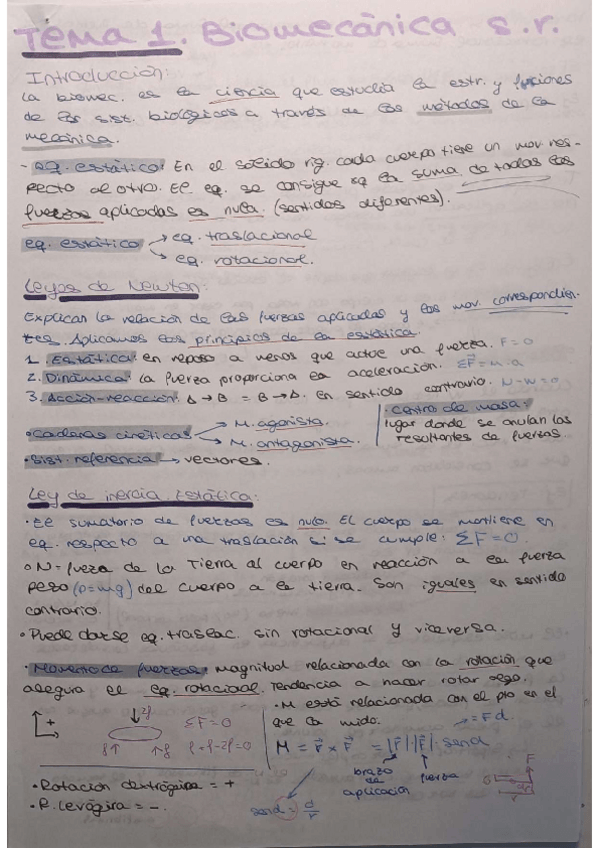 Tema 1. Biomecánica s.r.
Introducción:
La biomec. es la ciencia que estudia la estr. y funciones
de los sist. biológicos a través de los métodos de la
mecánica.
- Eq. estático: En el sólido rig. cada cuerpo tiene un mov. res-
pecto al otro. El eq. se consigue si la suma de todas las
fuerzas aplicadas es nula. (sentidos diferentes).
eq. estático → eq. traslacional
→ eq. rotacional.
Leyes de Newton:
Explican la relación de las fuerzas aplicadas y los mov. correspondien-
tes. Aplicamos los principios de la estática.
1. Estática: en reposo a menos que actúe una fuerza. F = 0
2. Dinámica: la fuerza proporciona la aceleración. ΣF = m·a
3. Acción-reacción: A → B = B → A. En sentido contrario. N-W=0
• Cadenas cinéticas → M. agonista.
→ M. antagonista.
• Sist. referencia → vectores.
• Centro de masa:
lugar donde se anulan las
resultantes de fuerzas.
Ley de inercia Estática:
• El sumatorio de fuerzas es nulo. El cuerpo se mantiene en
eq. respecto a una traslación si se cumple: ΣF = 0.
○ N = fuerza de la Tierra al cuerpo en reacción a la fuerza
peso (p=mg) del cuerpo a la tierra. Son iguales en sentido
contrario.
• Puede darse eq. traslac. sin rotacional y viceversa.
• Momento de fuerzas: magnitud relacionada con la rotación que
asegura el eq. rotacional. Tendencia a hacer rotar algo.
+
2f
f f
ΣF = 0
f+f-2f=0
• M está relacionada con el pto en el
que la mido.
= F d.
M = r x F = |r|·|F|· send
brazo de aplicación
fuerza
send = d/r
F
r
• Rotación dextrógira = +
• R. levógira = -.